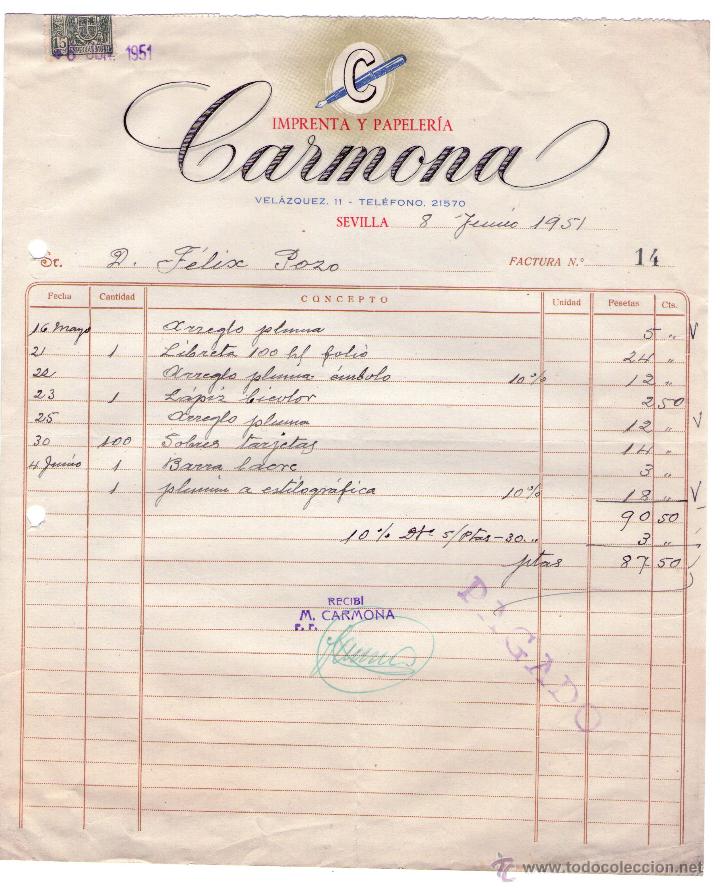 15
8 JUN. 1951
C
IMPRENTA Y PAPELERÍA
Carmona
VELÁZQUEZ, 11 - TELÉFONO, 21570
SEVILLA 8 Junio 1951
Sr. D. Félix Pozo FACTURA N.º 14
Fecha Cantidad CONCEPTO Unidad Pesetas Cts.
16 Mayo Arreglo pluma 5 "
21 1 Libreta 100 hf folio 24 "
22 Arreglo pluma émbolo 10% 12 "
23 1 Lápiz bicolor 2 50
25 Arreglo pluma 12 "
30 100 Sobres tarjetas 14 "
4 Junio 1 Barra lacre 3 "
1 plumin a estilográfica 10% 18 "
90 50
10% Dto s/Ptas-30 " 3 "
ptas 87 50
RECIBÍ
M. CARMONA
P. P.
PAGADO
www.todocoleccion.net